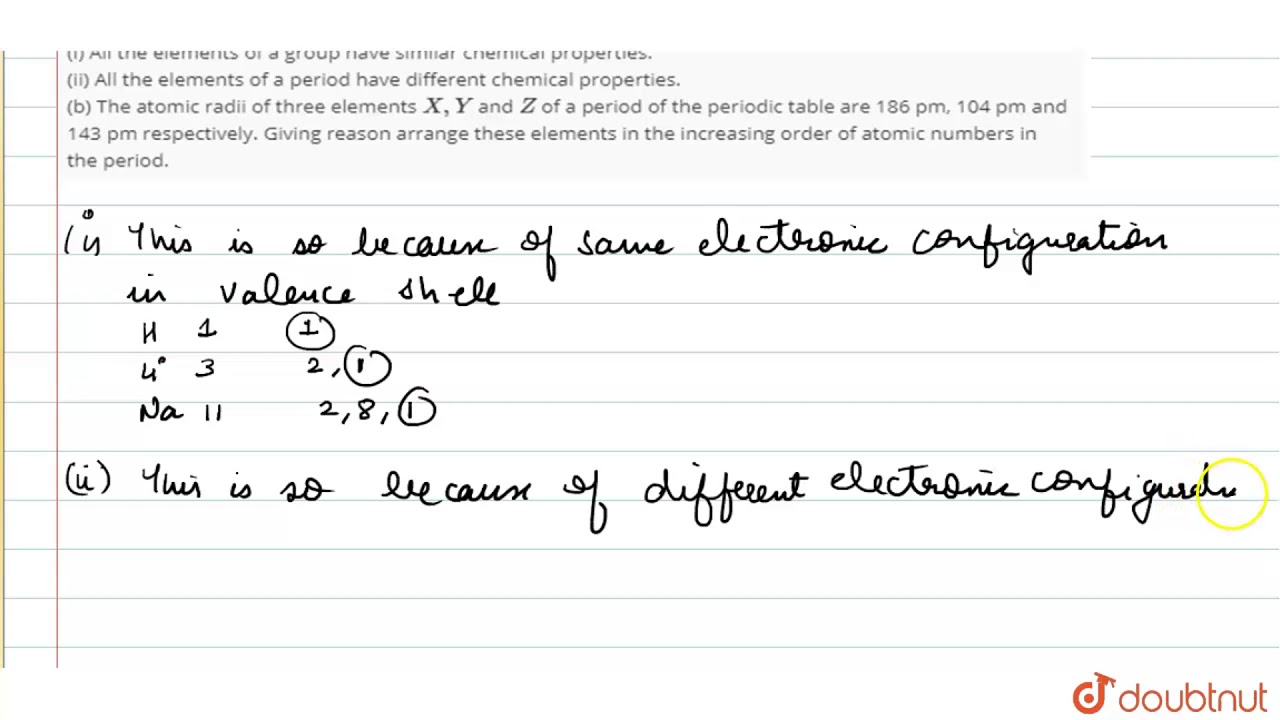 (i) All the elements of a group have similar chemical properties.
(ii) All the elements of a period have different chemical properties.
(b) The atomic radii of three elements X, Y and Z of a period of the periodic table are 186 pm, 104 pm and
143 pm respectively. Giving reason arrange these elements in the increasing order of atomic numbers in
the period.
(i) This is so because of same electronic configuration
in valence shell
H 1 1
Li 3 2, 1
Na 11 2, 8, 1
(ii) This is so because of different electronic
doubtnut